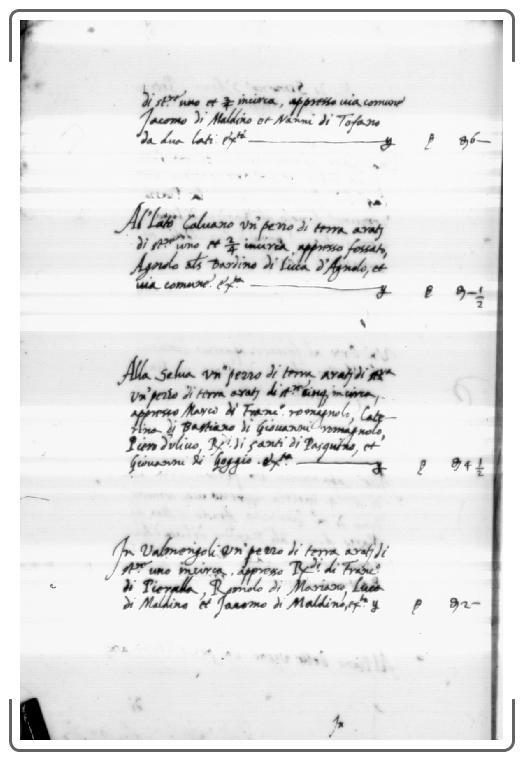 di st.re uno et 2/4 incirca, appresso via comune
Jacomo di Maldino et Nanni di Tofano
da dua lati ex.ti
6 —
Al'Lato Calvano un' pezzo di terra arat.
di st.re uno et 2/4 incirca appresso fossato,
Agnolo als Bardino di Luca d'Agnolo, et
via comune. ex.ta
— 1/2
Alla Selva un' pezzo di terra arat. di
un' pezzo di terra arat. di st.re cinq. incirca,
appresso Marco di Franc.o romagnolo, Cate-
rina di Bastiano di Giovanni romagnolo,
Piero d'ulivo, R.di di Santi di Pasquino, et
Giovanni di Goggio. ex.ta
4 1/2
In Valmongoli un' pezzo di terra arat. di
st.re uno incirca, appresso R.di di Franc.o
di Pieralla, Romolo di Mariano, Luca
di Maldino et Jacomo di Maldino, ex.ta
2 —
In